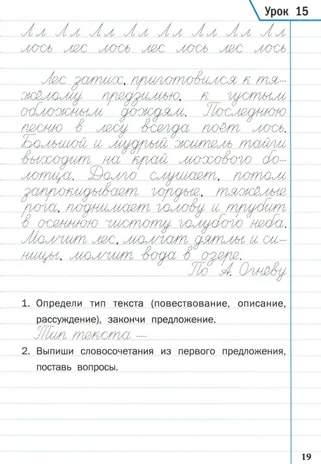 Урок 15
Ал Ал Ал Ал Ал Ал Ал Ал
лось лес лось лес лось лес лось
Лес затих, приготовился к тя-
жёлому предзимью, к густым
обложным дождям. Последнюю
песню в лесу всегда поёт лось.
Большой и мудрый житель тайги
выходит на край мохового бо-
лотца. Долго слушает, потом
запрокидывает гордые, тяжёлые
рога, поднимает голову и трубит
в осеннюю чистоту голубого неба.
Молчит лес, молчат дятлы и си-
ницы, молчит вода в озере.
По А. Огневу
1. Определи тип текста (повествование, описание,
рассуждение), закончи предложение.
Тип текста ....
2. Выпиши словосочетания из первого предложения,
поставь вопросы.
19